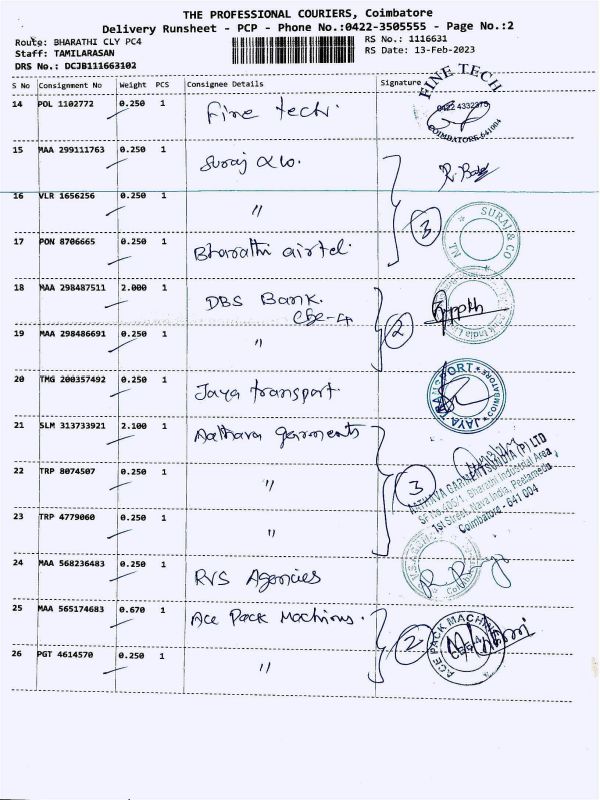 THE PROFESSIONAL COURIERS, Coimbatore
Delivery Runsheet - PCP - Phone No.:0422-3505555 - Page No.:2
Route: BHARATHI CLY PC4 RS No.: 1116631
Staff: TAMILARASAN RS Date: 13-Feb-2023
DRS No.: DCJB111663102
S No Consignment No Weight PCS Consignee Details Signature
14 POL 1102772 0.250 1 Fine tech. FINE TECH 0422 4332375 COIMBATORE-641004
15 MAA 299111763 0.250 1 Suraj & Co.
16 VLR 1656256 0.250 1 " 3 SURAJ & CO
17 PON 8706665 0.250 1 Bharathi airtel.
18 MAA 298487511 2.000 1 DBS Bank.
CBE-4 2
19 MAA 298486691 0.250 1 "
20 TMG 200357492 0.250 1 Jaya transport. JAYA TRANSPORT COIMBATORE
21 SLM 313733921 2.100 1 Aathava garments
22 TRP 8074507 0.250 1 " 3 AATHAVA GARMENTS INDIA (P) LTD
Bharathi Industrial Area,
1st Street, Nava India, Peelamedu
Coimbatore - 641 004
23 TRP 4779060 0.250 1 "
24 MAA 568236483 0.250 1 RVS Agencies
25 MAA 565174683 0.670 1 Ace Pack Machines. 2 ACE PACK MACHINES
26 PGT 4614570 0.250 1 "